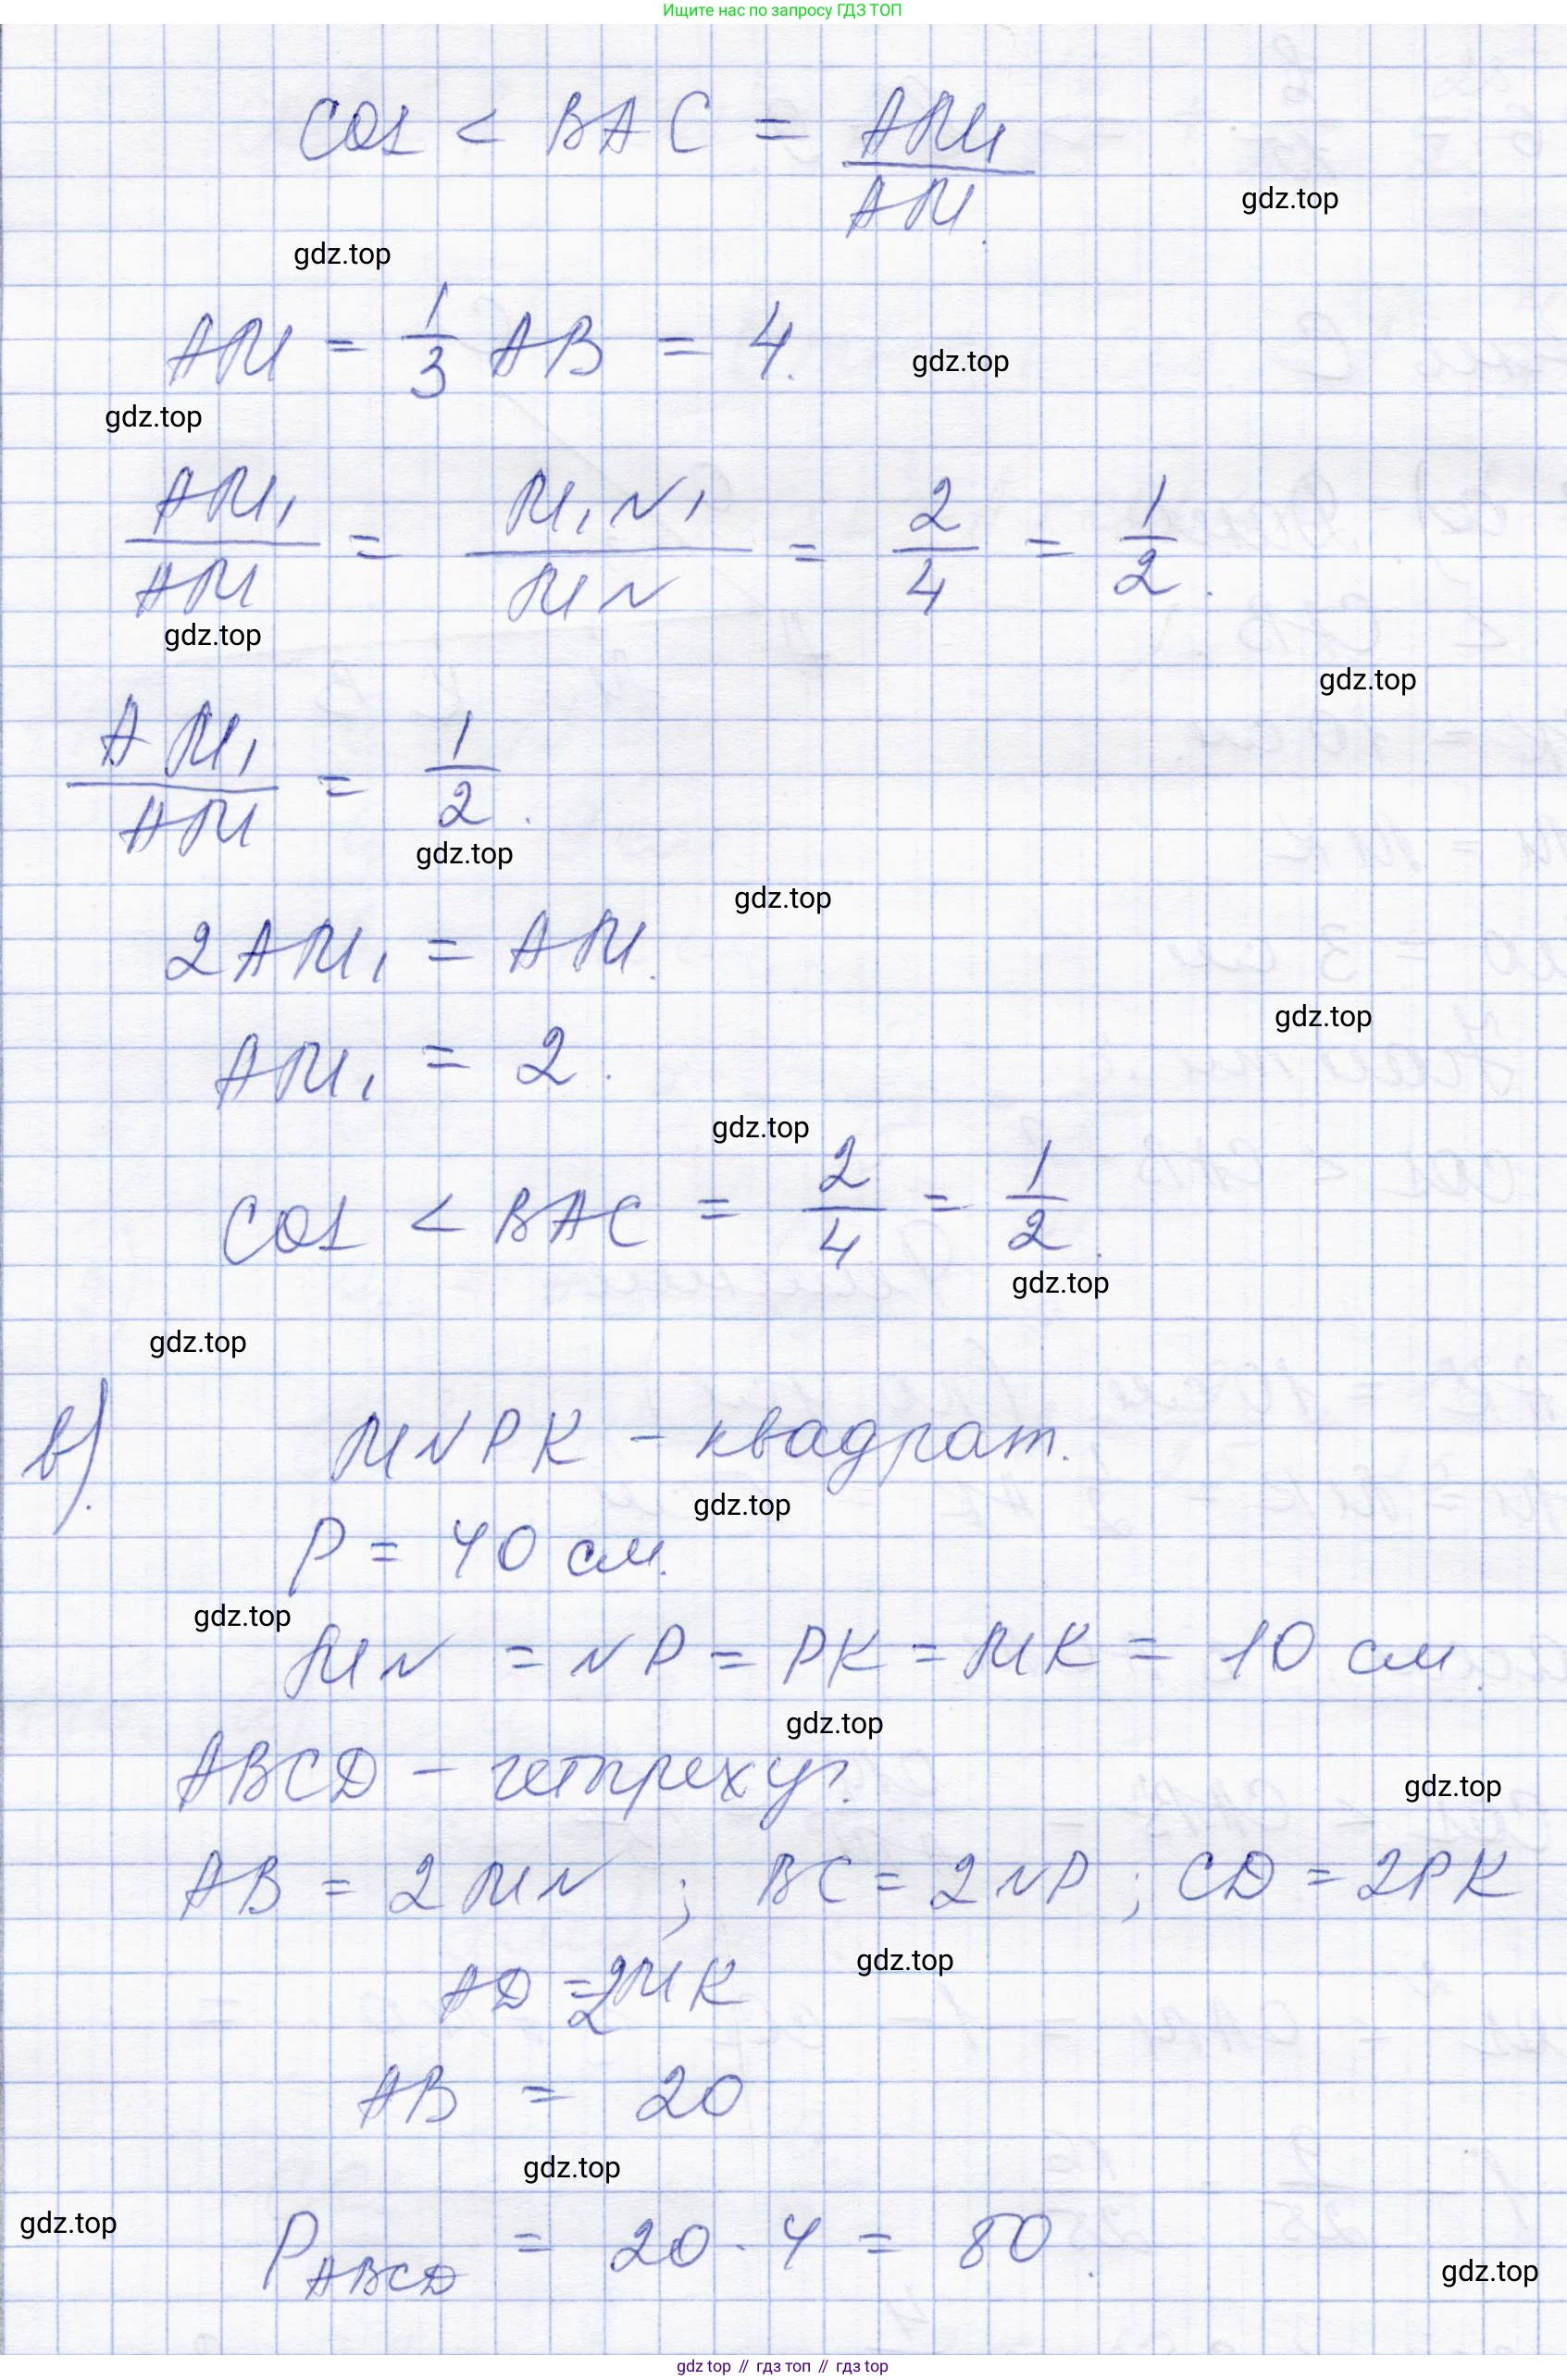 Ищите нас по запросу ГДЗ ТОП
cos < BAC = AM₁/AM.
gdz.top
gdz.top
AM = 1/3 AB = 4.
gdz.top
gdz.top
AM₁/AM = M₁N₁/MN = 2/4 = 1/2.
gdz.top
gdz.top
AM₁/AM = 1/2.
gdz.top
gdz.top
2AM₁ = AM.
gdz.top
AM₁ = 2.
gdz.top
cos < BAC = 2/4 = 1/2.
gdz.top
gdz.top
в). MNPK – квадрат.
gdz.top
P = 40 см.
gdz.top
MN = NP = PK = MK = 10 см.
gdz.top
ABCD – четырехуг.
gdz.top
AB = 2MN ; BC = 2NP ; CD = 2PK
AD = 2MK
gdz.top
AB = 20
gdz.top
gdz.top
P ABCD = 20 · 4 = 80.
gdz.top
gdz top // гдз топ // гдз top